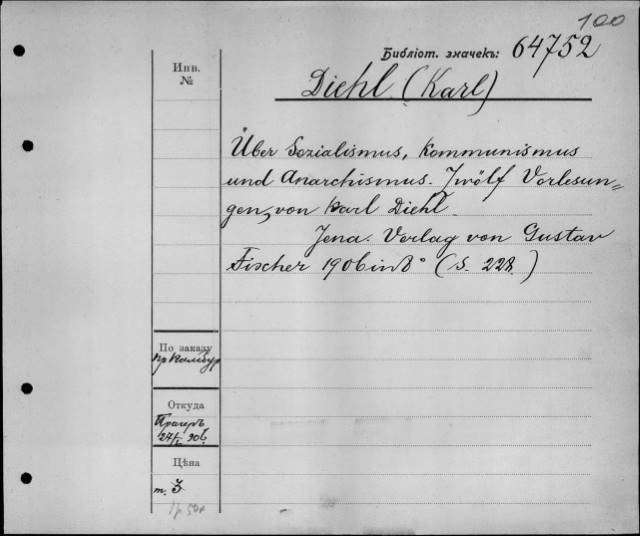 100
Библіот. значекъ: 64752
Инв.
№
Diehl (Karl)
Über Sozialismus, Kommunismus
und Anarchismus. Zwölf Vorlesun-
gen, von Karl Diehl.
Jena. Verlag von Gustav
Fischer 1906 in 8° (S. 228.)
По заказу
Откуда
Прагеръ
Цѣна
m. 3